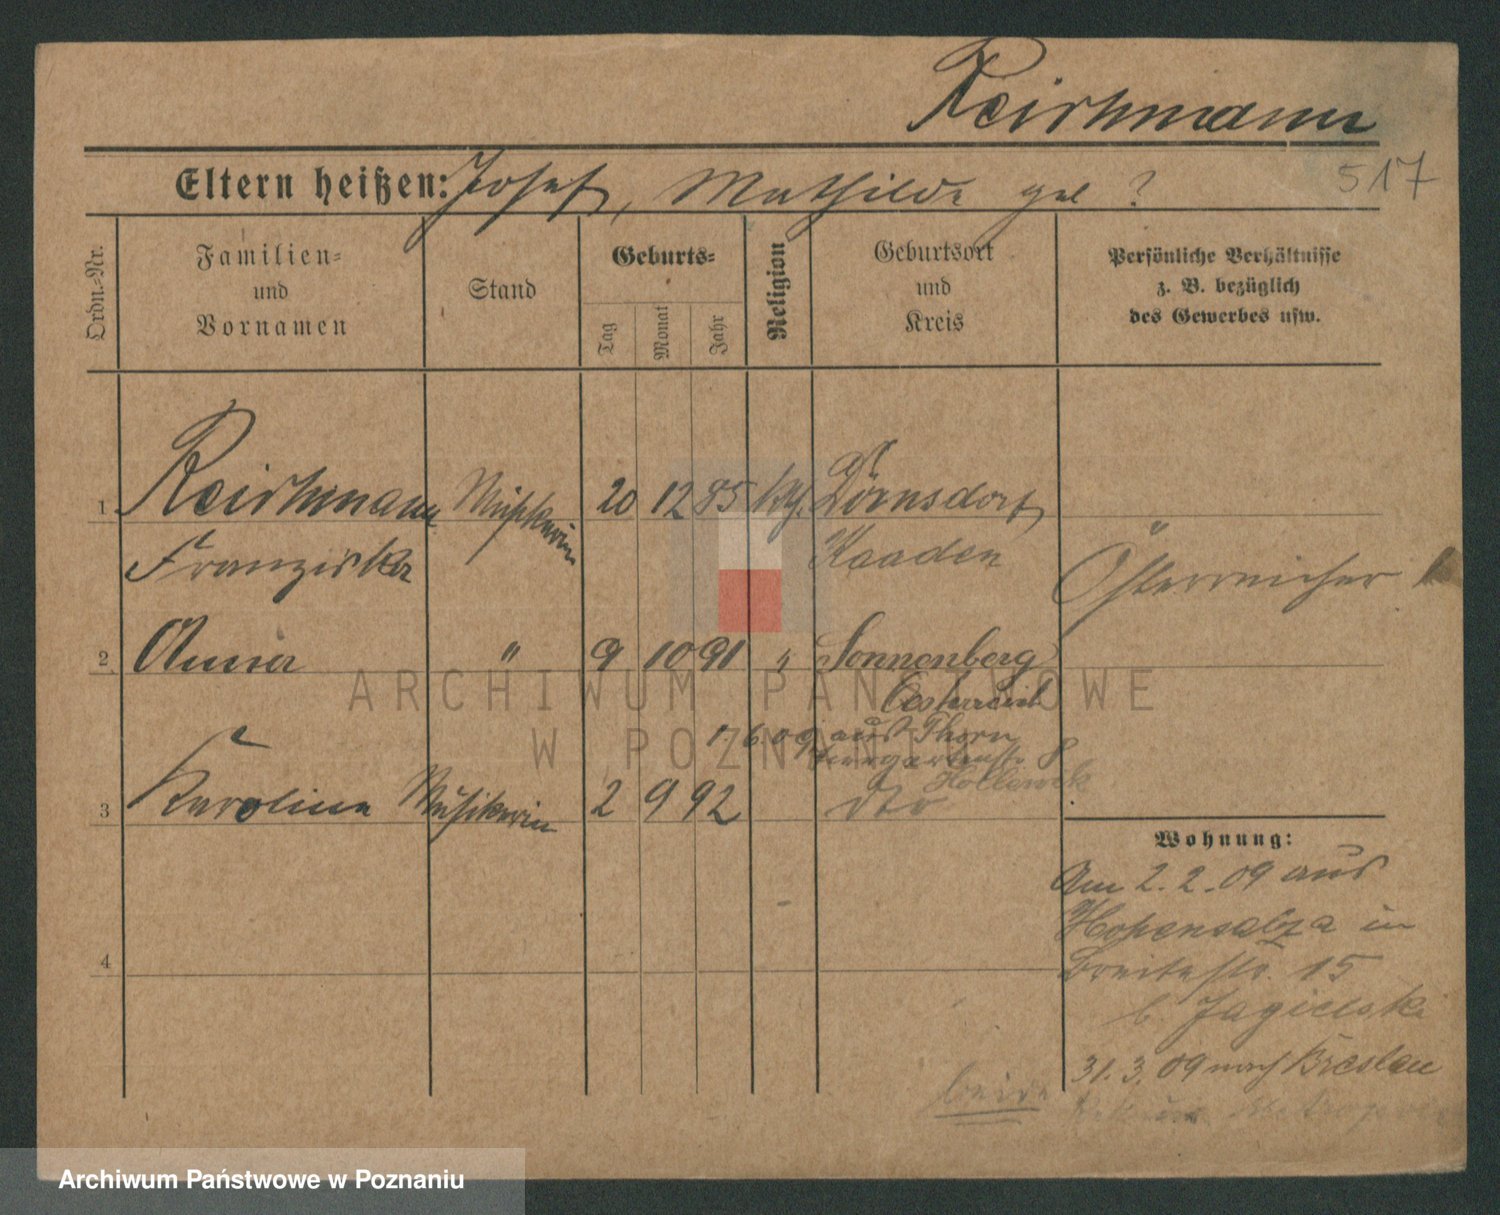 Reichmann
517
Eltern heißen: Josef, Mathilde geb ?
Ordn.-Nr.
Familien-
und
Vornamen
Stand
Geburts-
Tag
Monat
Jahr
Religion
Geburtsort
und
Kreis
Persönliche Verhältnisse
z. B. bezüglich
des Gewerbes usw.
1 Reichmann Musikerin 20 12 85 kth. Dörnsdorf
Franziska Kaaden
Österreicher
2 Anna " 9 10 91 " Sonnenberg
Oesterreich
1. 6 09 aus Thorn
8
3 Karoline Musikerin 2 9 92 dto
4
Wohnung:
Am 2. 2. 09 aus
Hohensalza in
Breitestr. 15
b. Jagielski
31. 3. 09 nach Breslau
beide
ARCHIWUM PAŃSTWOWE
W POZNANIU
Archiwum Państwowe w Poznaniu